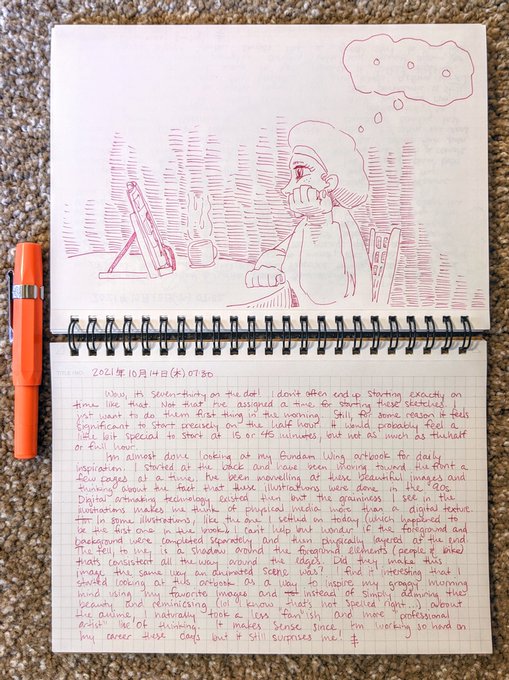 2021年10月14日(木) 07:30
Wow, it's seven-thirty on the dot! I don't often end up starting exactly on
time like that. Not that I've assigned a time for starting these sketches. I
just want to do them first thing in the morning. Still, for some reason it feels
significant to start precisely on the half hour. It would probably feel a
little bit special to start at 15 or 45 minutes, but not as much as the half
or full hour.
I'm almost done looking at my Gundam Wing artbook for daily
inspiration. I started at the back and have been moving toward the front a
few pages at a time. I've been marvelling at these beautiful images and
thinking about the fact that these illustrations were done in the '90s.
Digital artmaking technology existed then but the graininess I see in the
illustrations makes me think of physical media more than a digital texture.
In some illustrations, like the one I settled on today (which happened to
be the first one in the book), I can't help but wonder if the foreground and
background were completed separately and then physically layered at the end.
The tell, to me, is a shadow around the foreground elements (people & bike)
that's consistent all the way around the edges. Did they make this
image the same way an animated scene was? I find it interesting that I
started looking at this artbook as a way to inspire my groggy morning
mind using my favorite images and instead of simply admiring the
beauty and reminicsing (lol I know that's not spelled right...) about
the anime, I naturally took a less "fan"ish and more "professional
artist" line of thinking. It makes sense since I'm working so hard on
my career these days but it still surprises me!